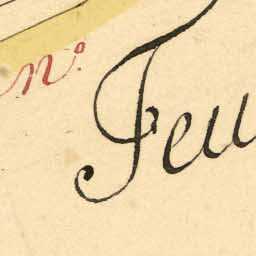 n.º
Feu